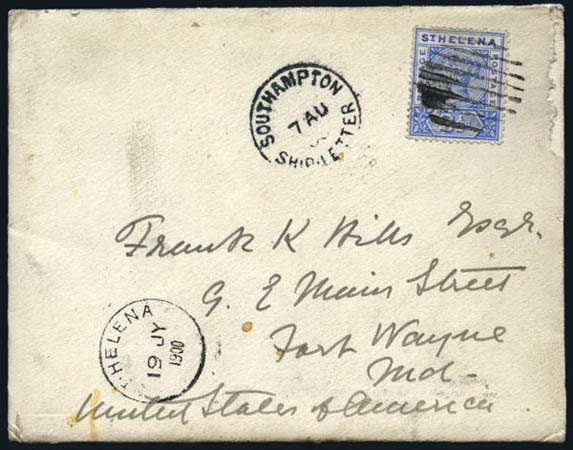 ST HELENA
POSTAGE
SOUTHAMPTON
7 AU
SHIP-LETTER
Frank K Hills Esqr.
G. E Main Street
Fort Wayne
Md-
United States of America.
HELENA
19 JY
1900